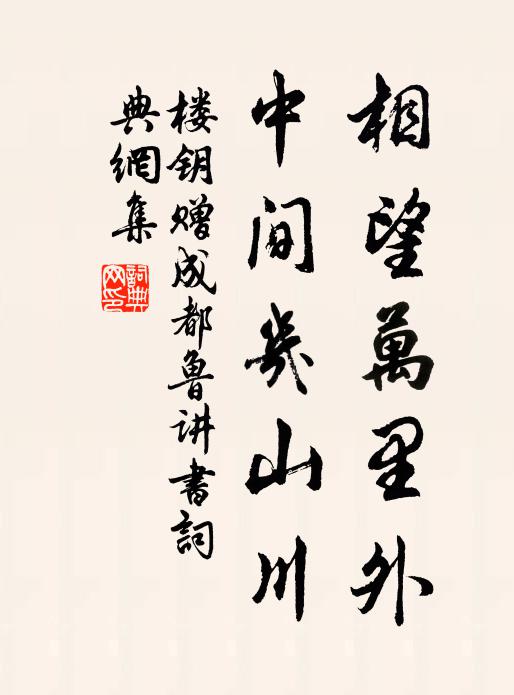 相望萬里外
中间幾山川
楼钥赠成都鲁讲書詞
典網集
詞典網印